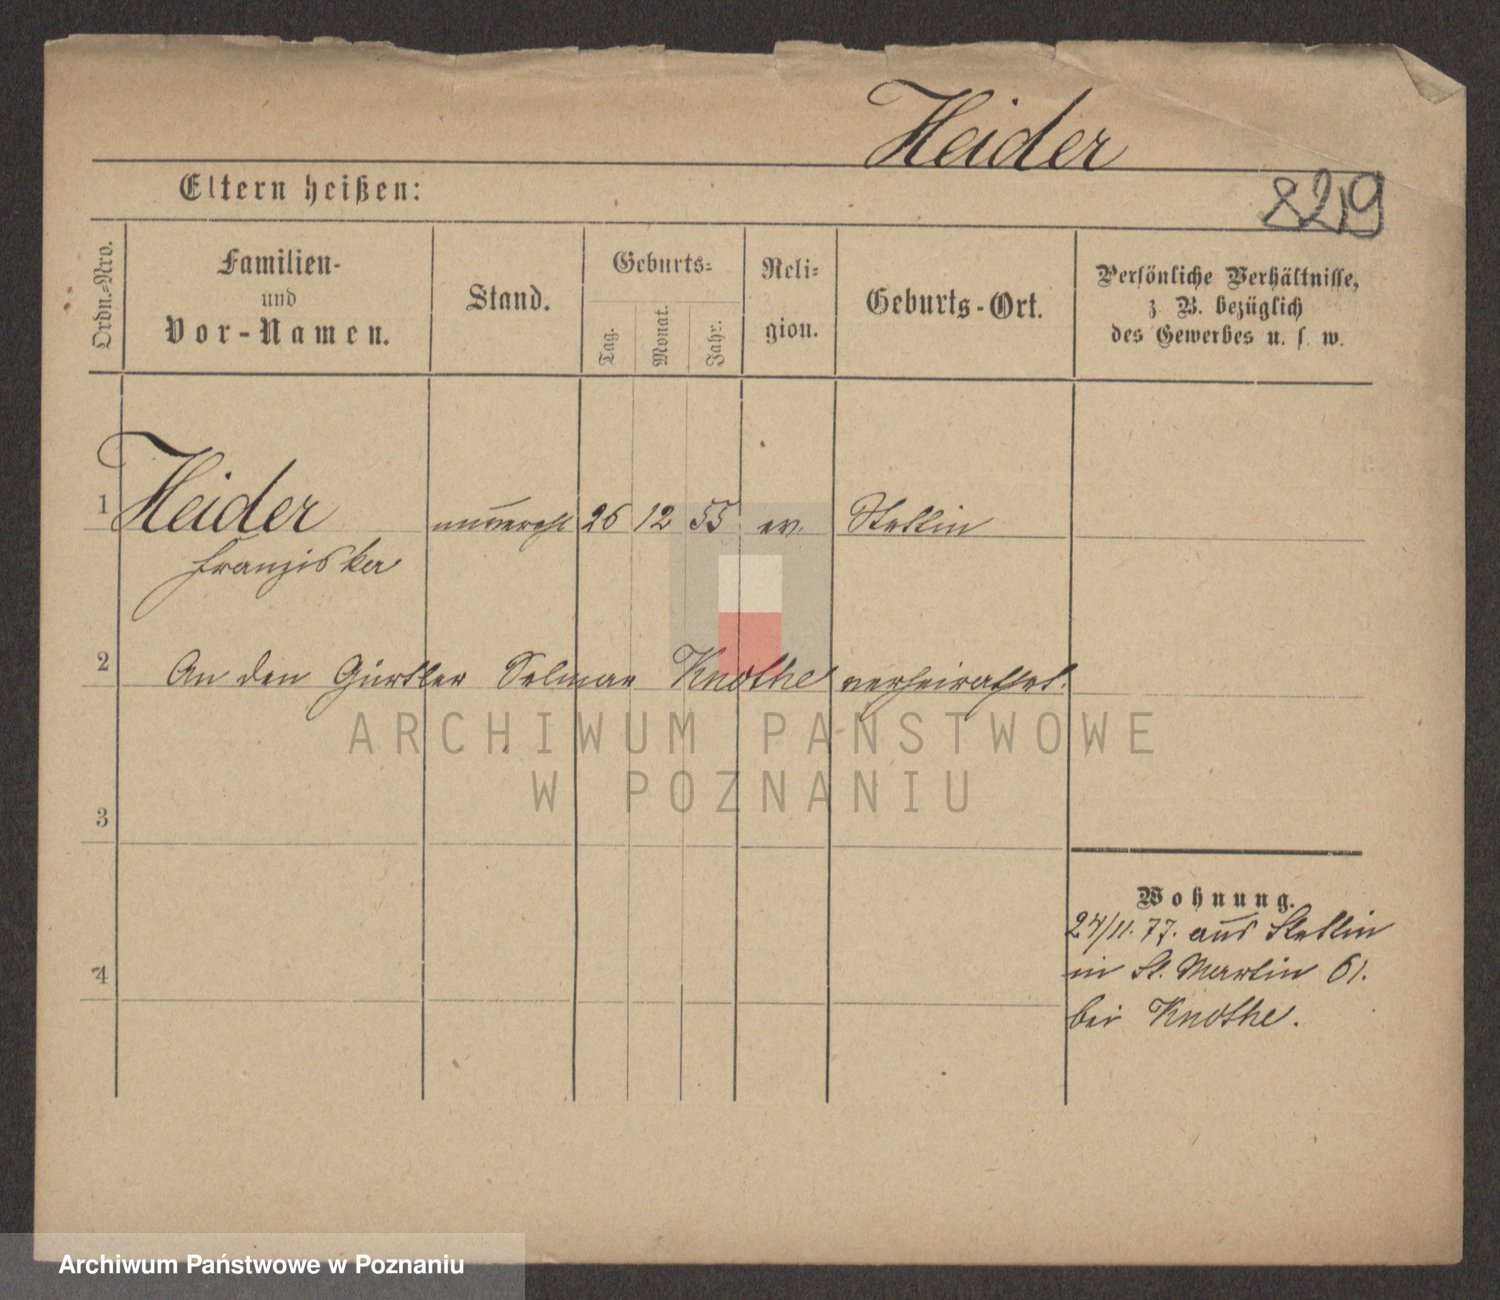 Heider
8219
Eltern heißen:
Ordn.-Nro.
Familien-
und
Vor-Namen.
Stand.
Geburts-
Tag.
Monat.
Jahr.
Reli-
gion.
Geburts-Ort.
Persönliche Verhältnisse,
z. B. bezüglich
des Gewerbes u. s. w.
1 Heider unvereh 26 12 55 ev. Stettin
Franziska
2 An den Gürtler Selmar Knothe verheirathet.
ARCHIWUM PAŃSTWOWE
W POZNANIU
3
Wohnung.
24/11. 77. aus Stettin
4 in St. Martin 61.
bei Knothe.
Archiwum Państwowe w Poznaniu